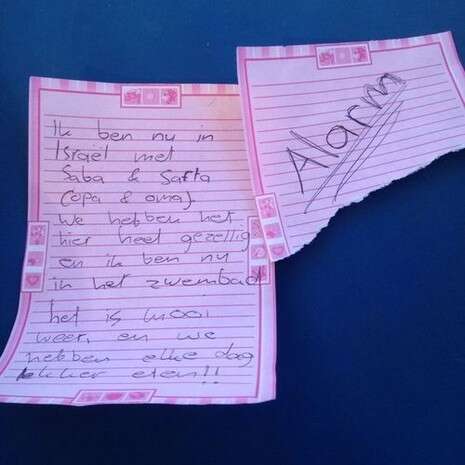 Ik ben nu in
Israël met
Saba & Safta
(opa & oma)
We hebben het
hier heel gezellig
en ik ben nu
in het zwembad
het is mooi
weer, en we
hebben elke dag
lekker eten!!
Alarm